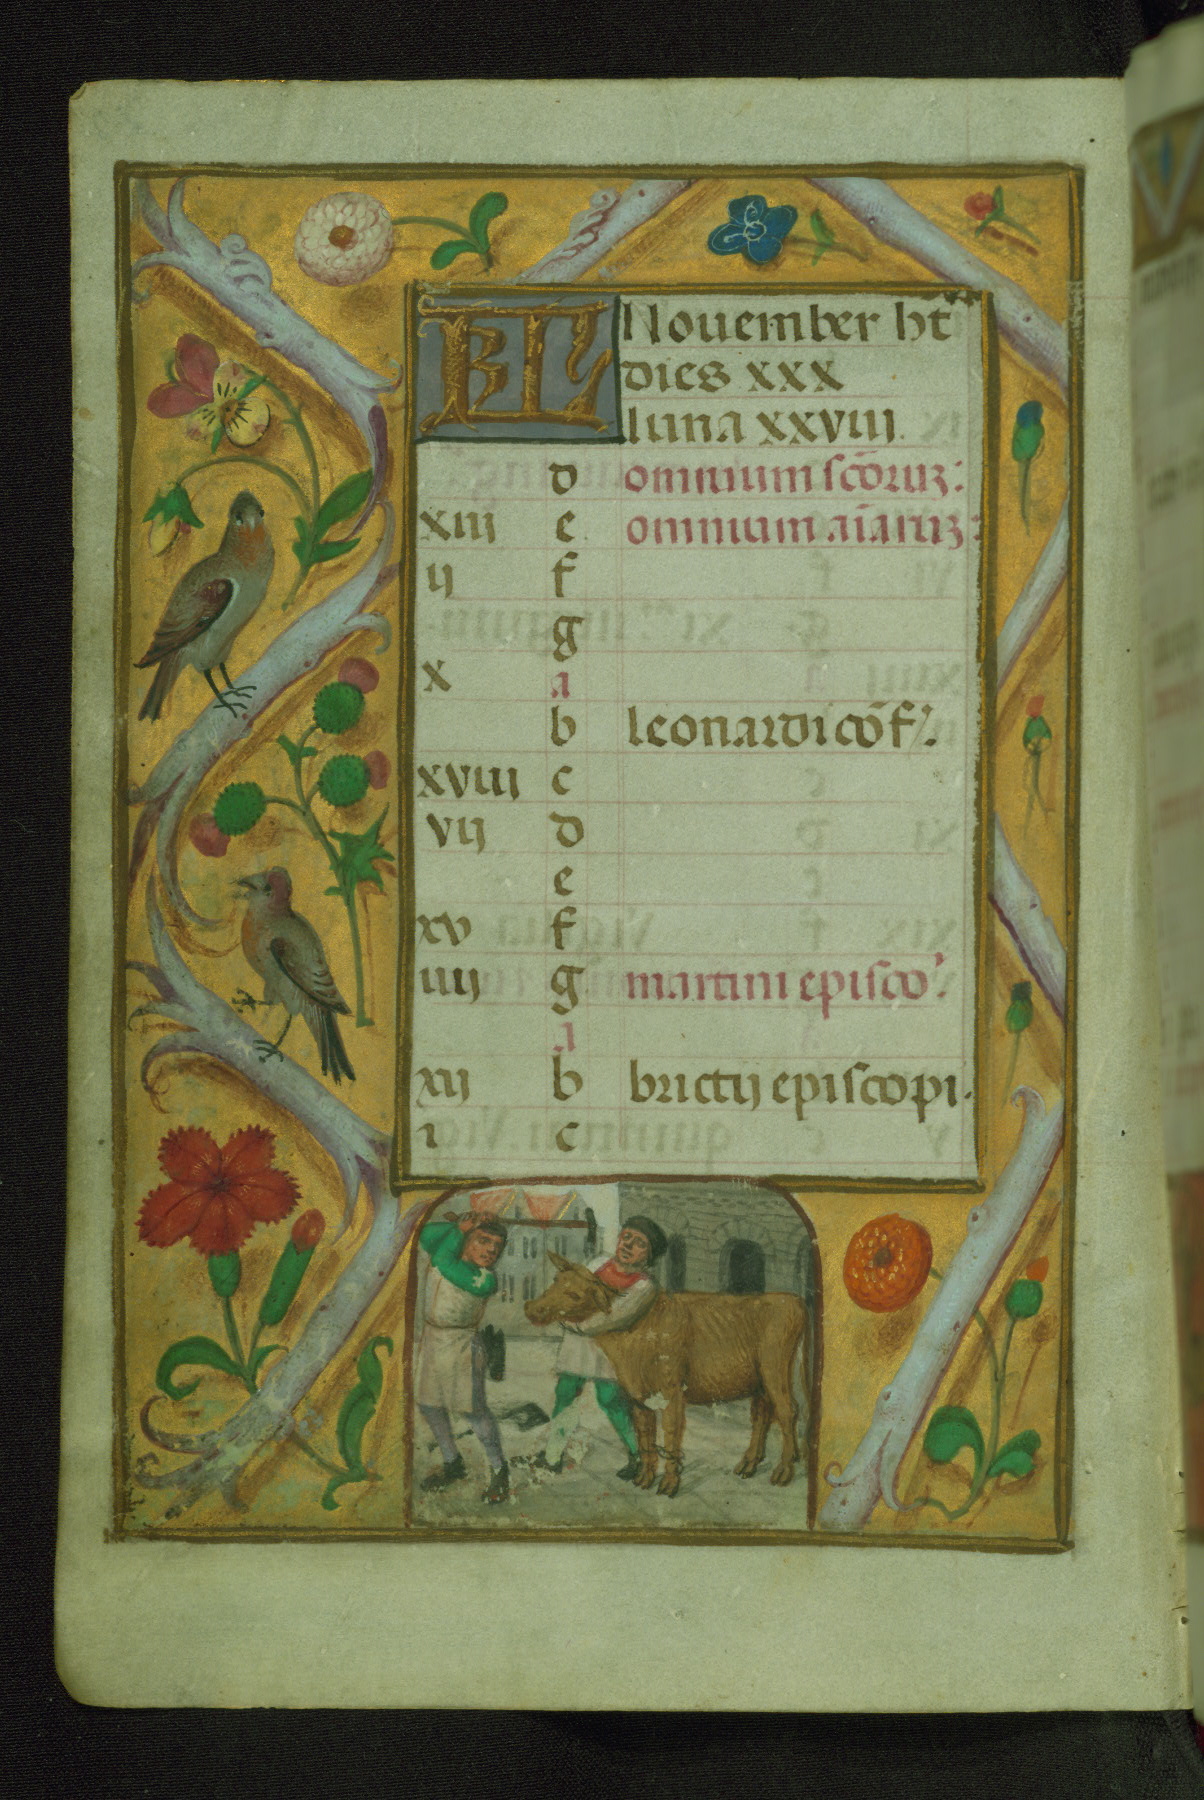 KL Nouember ht
dies xxx
luna xxviii.
d omnium scōruꝫ:
xiii e omnium aīaruꝫ:
ij f
g
x a
b leonardi cōf'.
xviii c
vij d
e
xv f
iiij g martini episco'.
a
xij b brictij episcopi.
i c